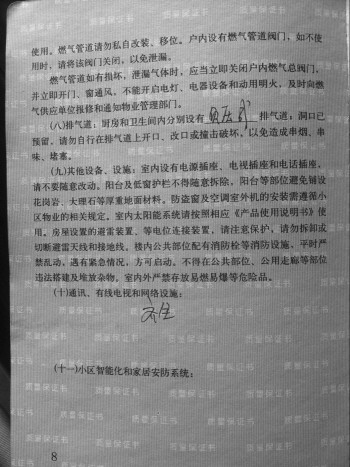 使用。燃气管道请勿私自改装、移位。户内设有燃气管道阀门，如不使
用时，请将该阀门关闭，以免泄漏。
燃气管道如有损坏，泄漏气体时，应当立即关闭户内燃气总阀门，
并立即开门、窗通风，不能开启电灯、电器设备和动用明火，及时向燃
气供应单位报修和通知物业管理部门。
(八)排气道：厨房和卫生间内分别设有 排气道；洞口已
预留，请勿自行在排气道上开口、改口或撞击破坏，以免造成串烟、串
味、堵塞。
(九)其他设备、设施：室内设有电源插座、电视插座和电话插座，
请不要随意改动。阳台及低窗护栏不得随意拆除，阳台等部位避免铺设
花岗岩、大理石等厚重地面材料。防盗窗及空调室外机的安装需遵循小
区物业的相关规定。室内太阳能系统请按照相应《产品使用说明书》使
用。房屋设置的避雷装置、等电位连接装置，请注意保护，请勿拆卸或
切断避雷天线和接地线。楼内公共部位配有消防栓等消防设施，平时严
禁乱动，遇有紧急情况，方可启动。不得在公共部位、公用走廊等部位
违法搭建及堆放杂物，室内外严禁存放易燃易爆等危险品。
(十)通讯、有线电视和网络设施：
(十一)小区智能化和家居安防系统：
8
质量保证书